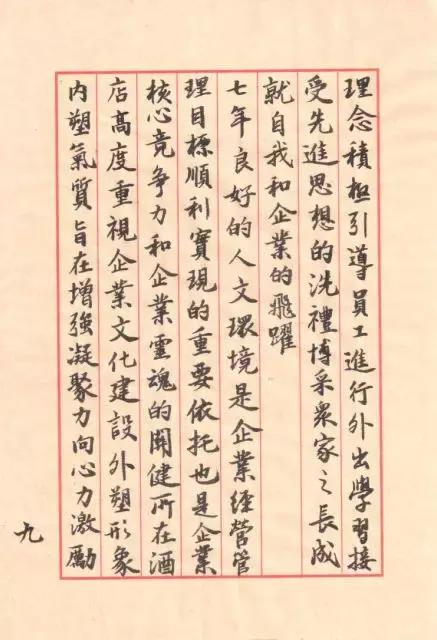 理念積極引導員工進行外出學習接
受先進思想的洗禮博采衆家之長成
就自我和企業的飛躍
七年良好的人文環境是企業經營管
理目標順利實現的重要依托也是企業
核心竞争力和企業靈魂的関健所在酒
店高度重視企業文化建設外塑形象
内塑氣質旨在增強凝聚力向心力激勵
九